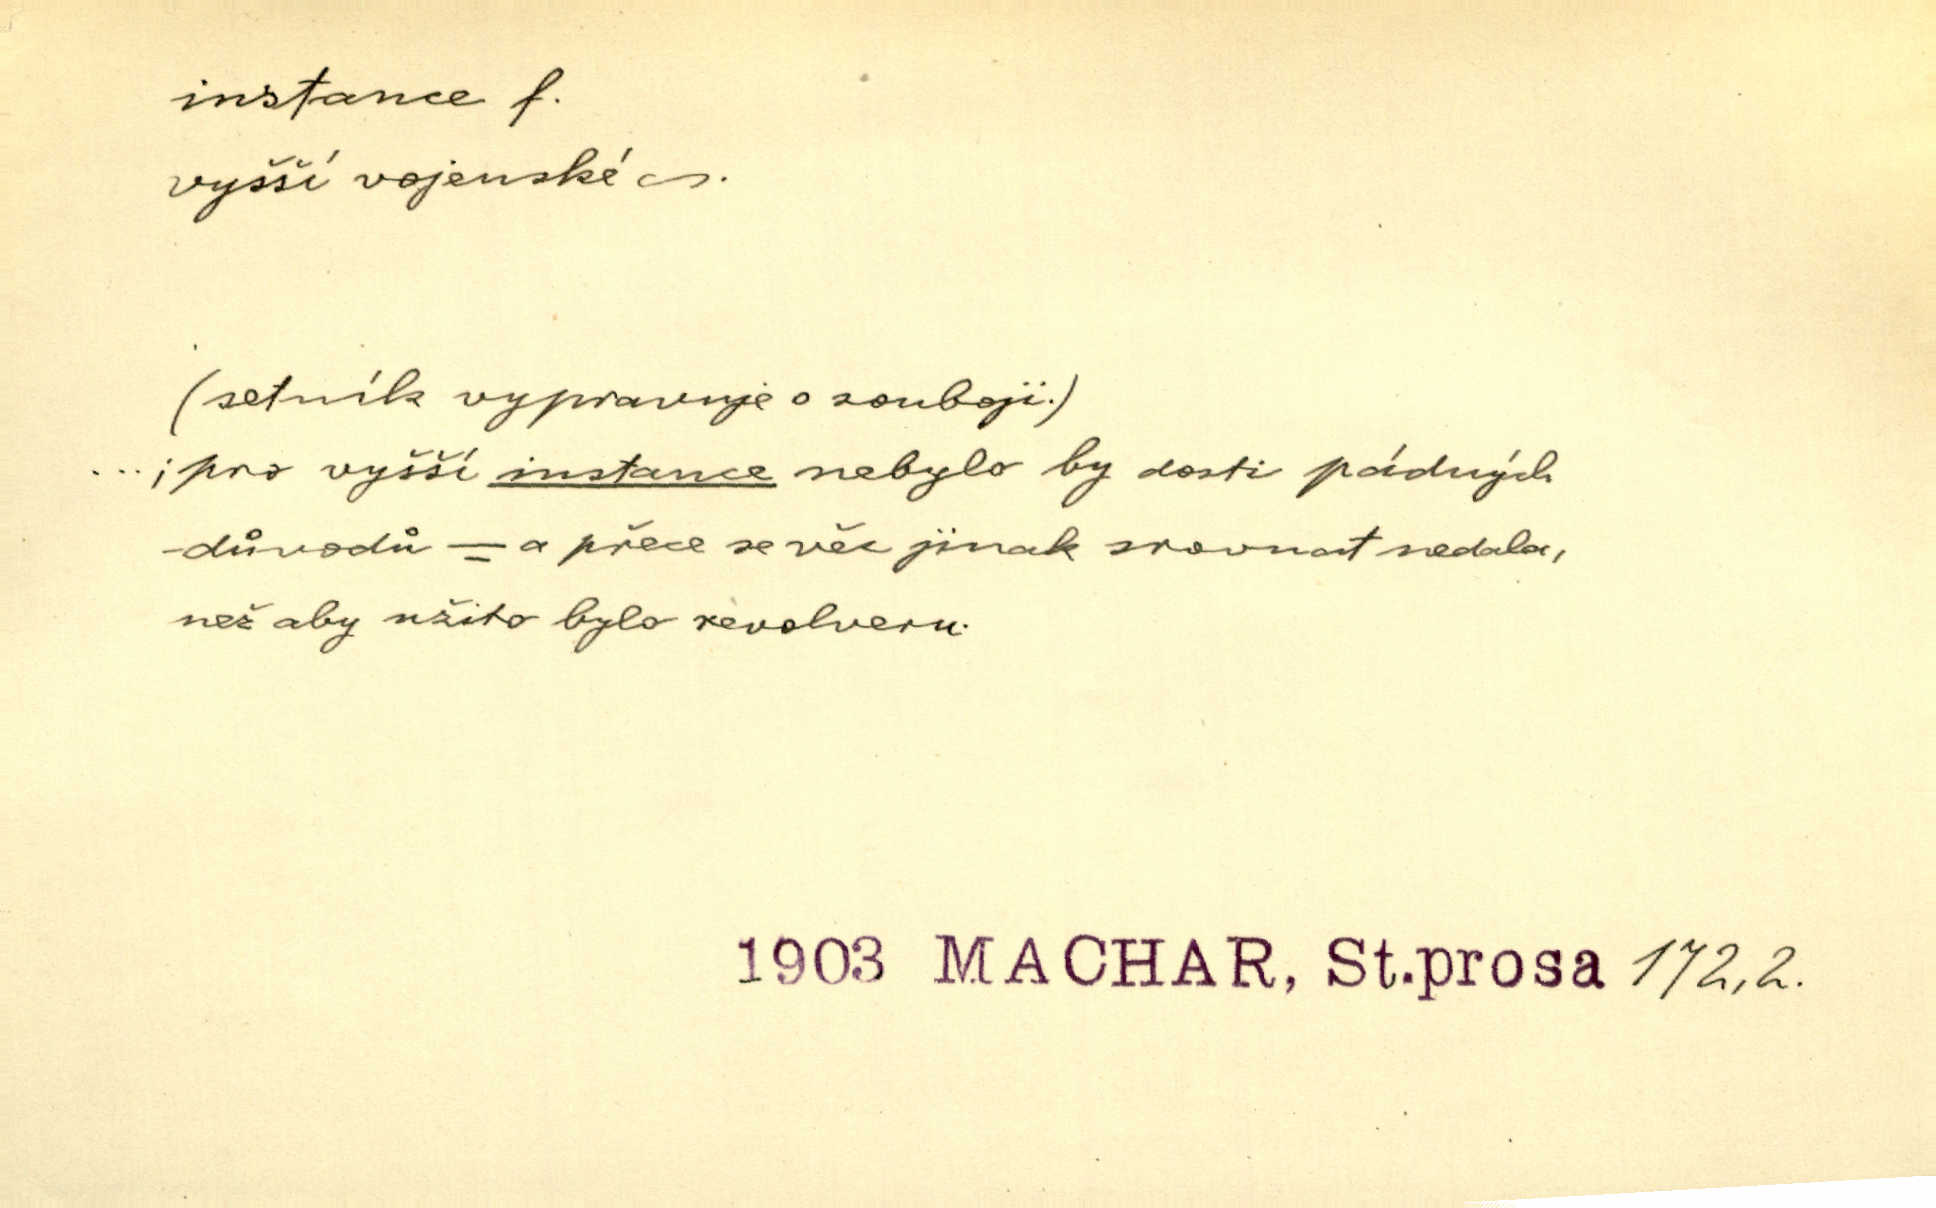 instance f.
vyšší vojenské ~.
(setník vypravuje o souboji.)
...; pro vyšší instance nebylo by dosti pádných
důvodů — a přece se věc jinak srovnat nedala,
než aby užito bylo revolveru.
1903 MACHAR, St.prosa 172,2.